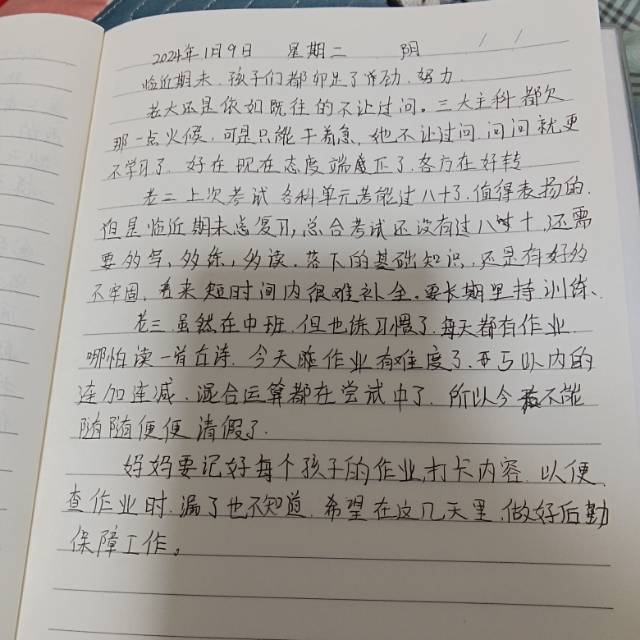 2024年1月9日 星期二 阴
临近期末，孩子们都卯足了劲，努力。
老大还是依如既往的不让过问。三大主科都欠
那一点火候，可是只能干着急，她不让过问，问问就更
不学习了，好在现在态度端庶正了，各方在好转
老二上次考试各科单元考能过八十了，值得表扬的，
但是临近期末总复习，总合考试还没有过八十，还需
要多写，多练，多读。落下的基础知识，还是有好多
不牢固，看来短时间内很难补全，要长期坚持训练、
老三虽然在中班，但也练习惯了，每天都有作业，
哪怕读一首古诗，今天作业有难度了，5以内的
连加连减，混合运算都在尝试中了，所以今不能
随随便便请假了。
妈妈要记好每个孩子的作业，打卡内容，以便
查作业时，漏了也不知道，希望在这几天里，做好后勤
保障工作。